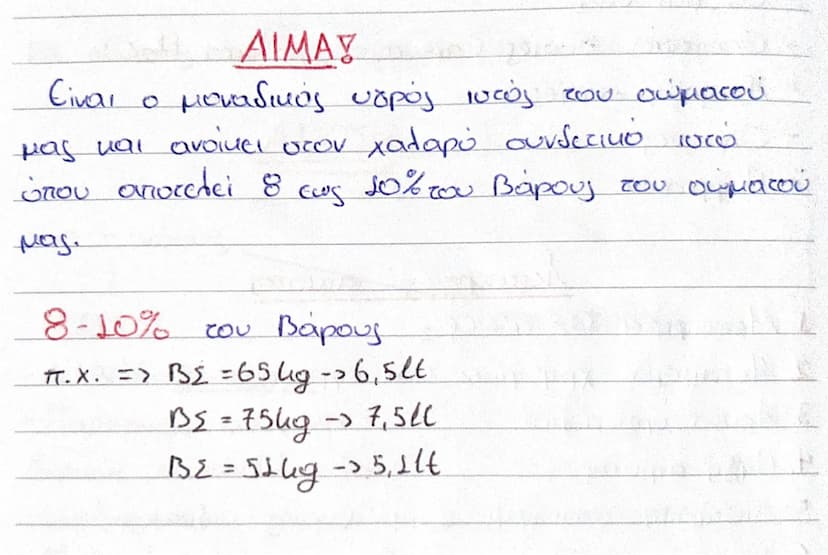 ΑΙΜΑ!
Είναι ο μοναδικός υγρός ιστός του σώματού
μας και ανοίκει στον χαλαρό συνδετικό ιστό
όπου αποτελεί 8 εως 10% του Βάρους του σωματού
μας.
8-10% του Βάρους
π.χ. => ΒΣ = 65kg -> 6,5lt
ΒΣ = 75kg -> 7,5lt
ΒΣ = 51kg -> 5,1lt